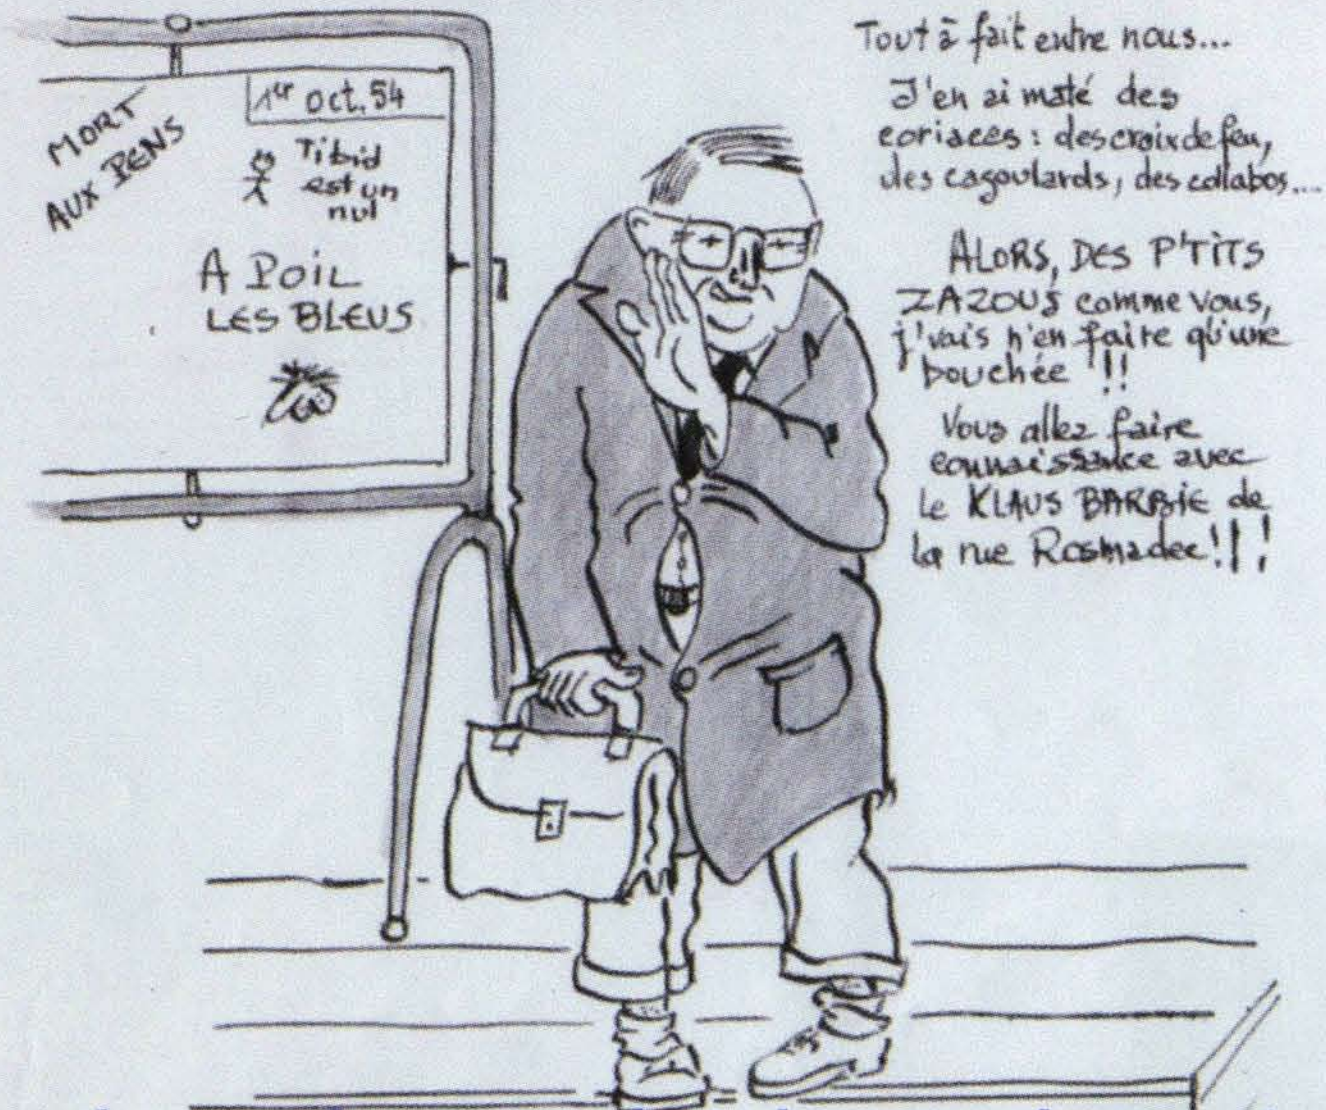 MORT
AUX PENS
1er oct. 54
Tibid
est un
nul
A POIL
LES BLEUS
Tout à fait entre nous...
J'en ai maté des
coriaces : des croix de feu,
des cagoulards, des collabos....
ALORS, DES P'TITS
ZAZOUS comme vous,
j'vais n'en faire qu'une
bouchée !!
Vous allez faire
connaissance avec
le KLAUS BARBIE de
la rue Rosmadec!!!